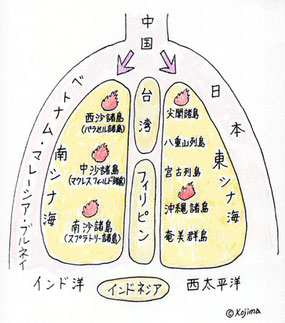 中国
ベトナム・マレーシア・ブルネイ
南シナ海
西沙諸島
(パラセル諸島)
中沙諸島
(マクレスフィールド諸島)
南沙諸島
(スプラトリー諸島)
台湾
フィリピン
尖閣諸島
八重山列島
宮古列島
沖縄諸島
奄美群島
東シナ海
日本
インド洋
インドネシア
西太平洋
©Kojima